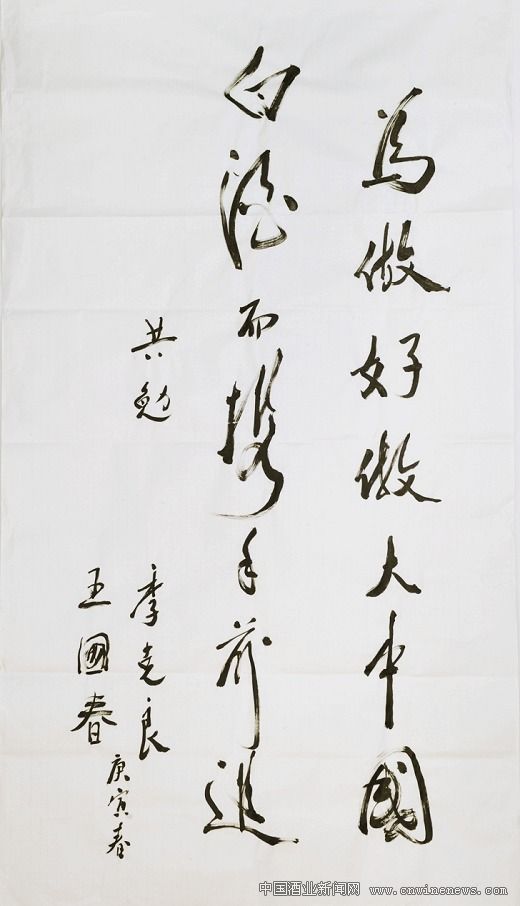 為做好做大中國
白酒而携手前進
共勉
季克良
王國春
庚寅春
中国酒业新闻网 www.cnwinenews.com